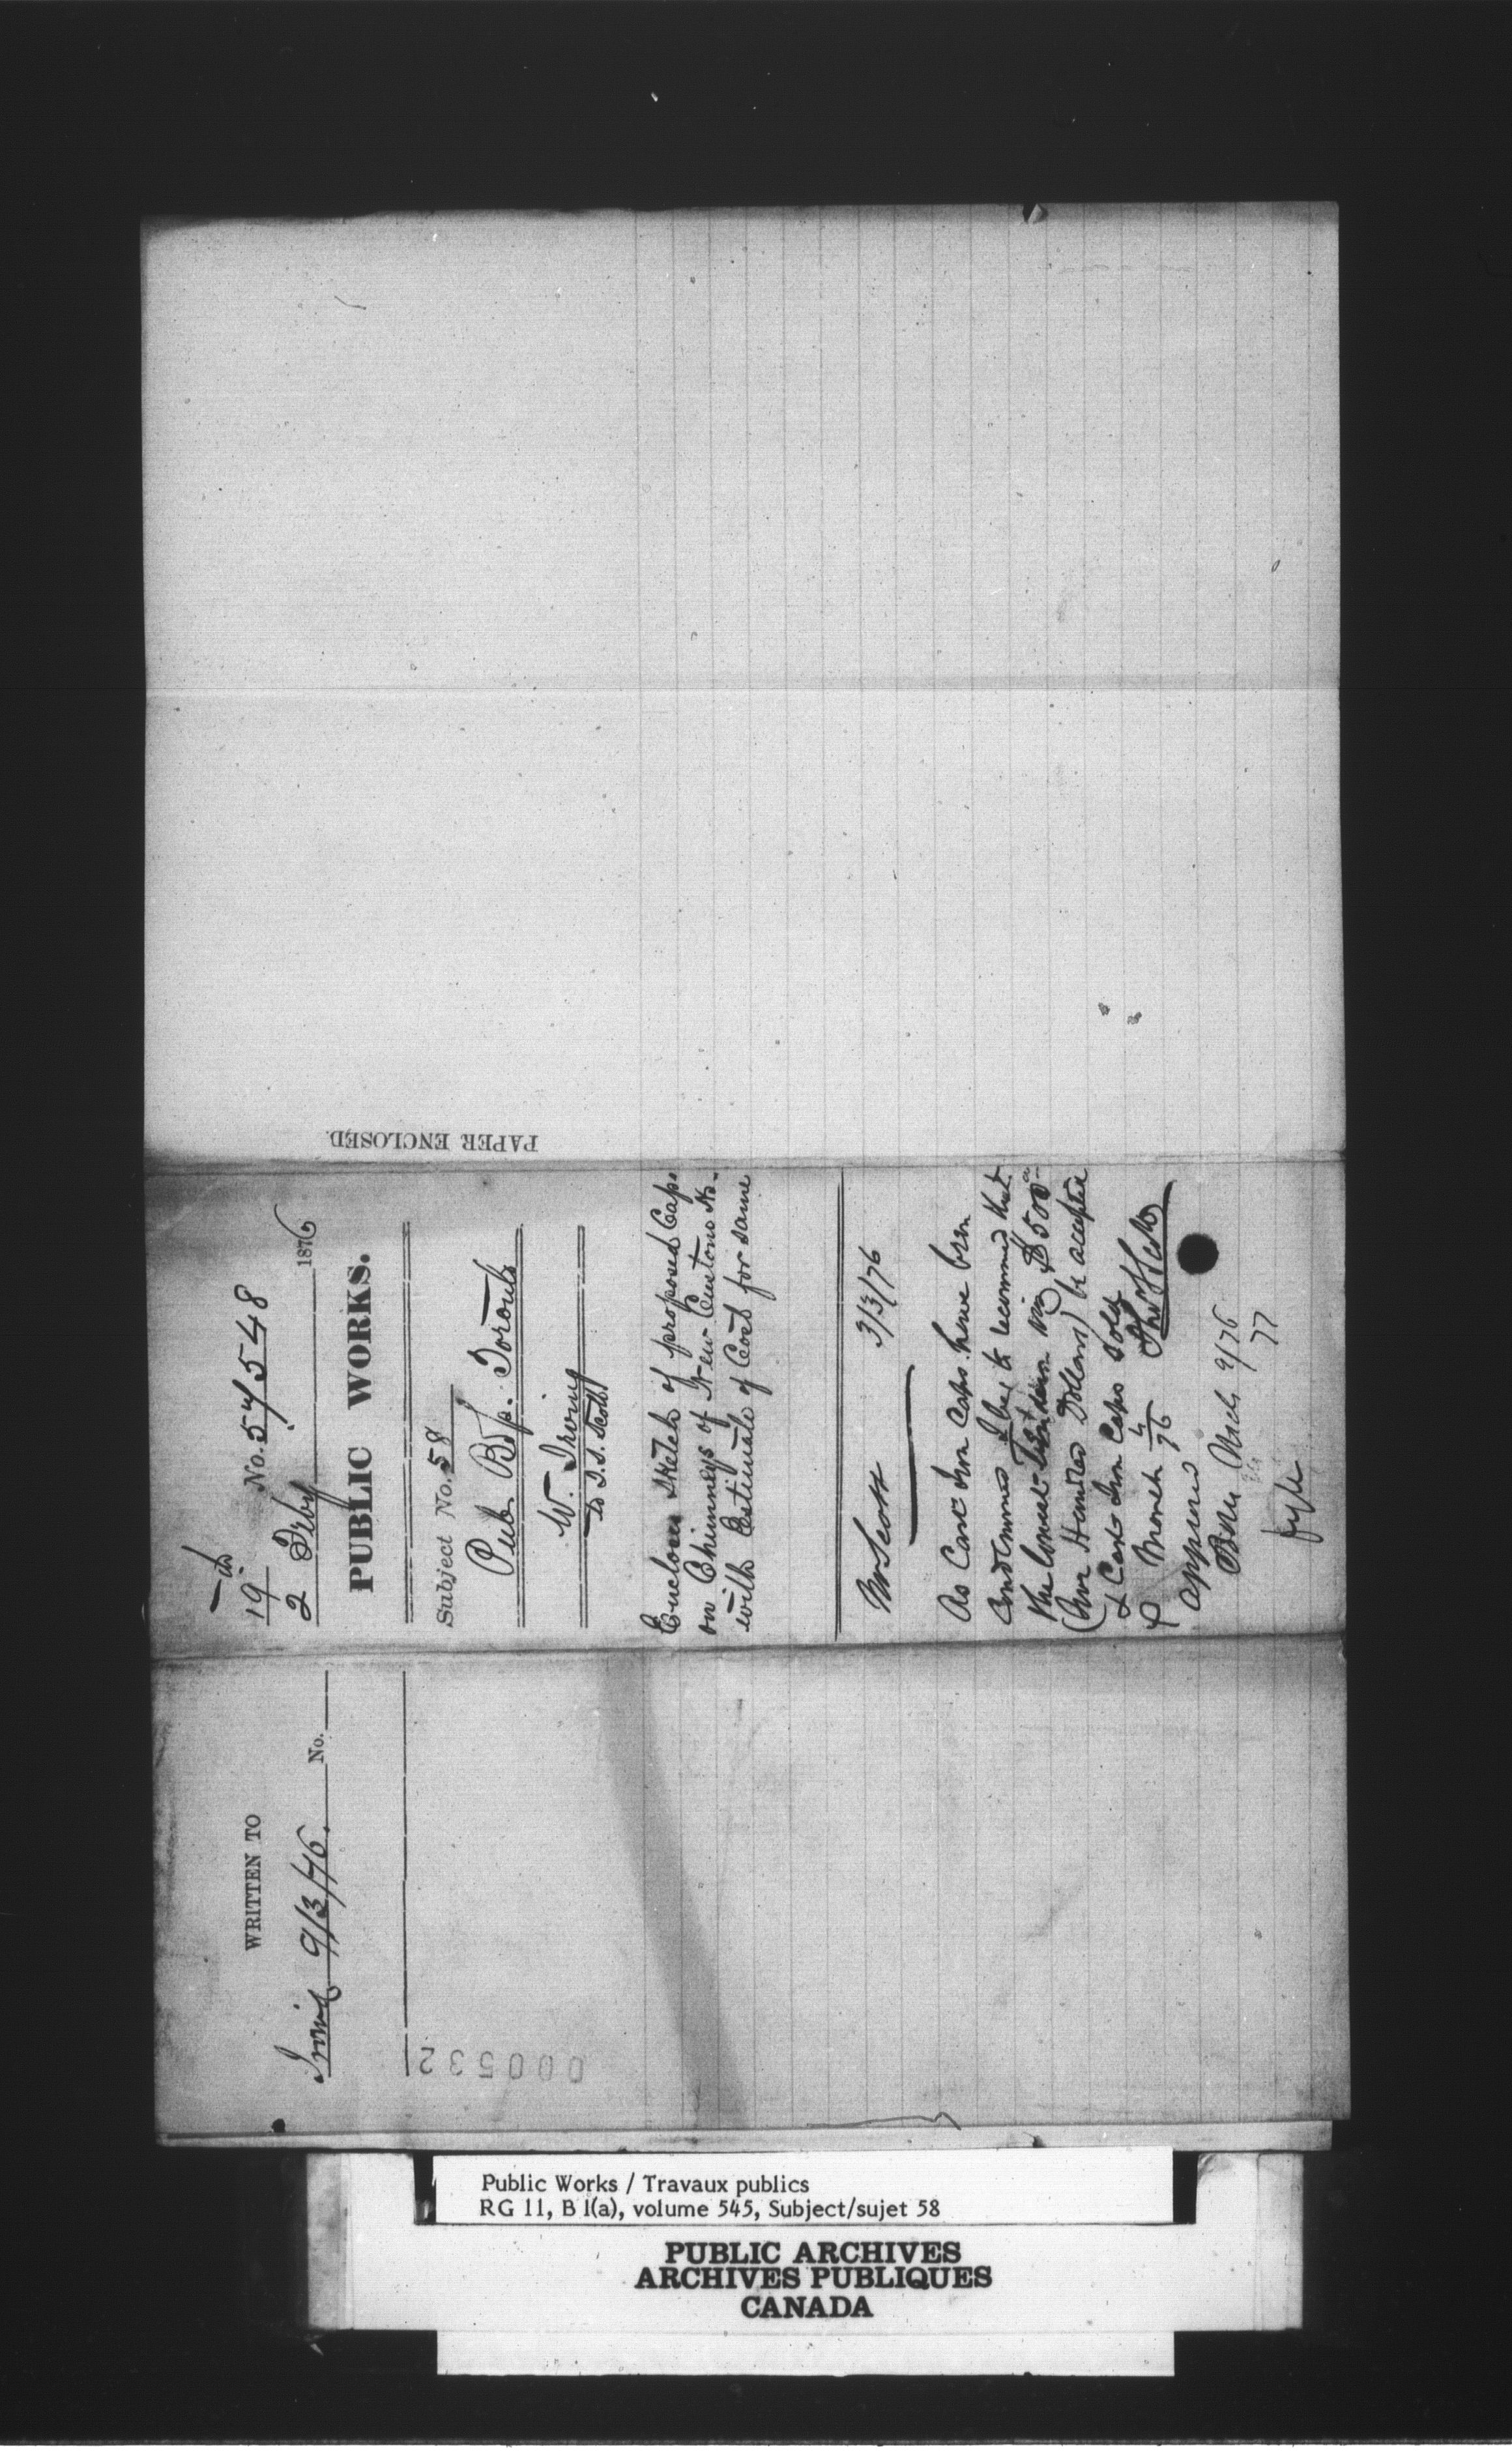 19
2 Feby 1876
No. 57548
PUBLIC WORKS.
Subject No. 58
Pub. Bdgs. Toronto
W. Irving
to T. S. Scott
Encloses Sketch of proposed Caps
on Chimneys of New Customs Ho.
with Estimate of Cost for same
Mr Scott 3/3/76
As Cast Iron Caps have been
condemned I beg to recommend that
the lowest viz $500
Hundred Dollars) be accepted
Cast Iron Caps sold
March 4/76
Approved
Mch 9/76
77
PAPER ENCLOSED.
WRITTEN TO
Irving 9/3/76. No.
000532
Public Works / Travaux publics
RG 11, B 1(a), volume 545, Subject/sujet 58
PUBLIC ARCHIVES
ARCHIVES PUBLIQUES
CANADA